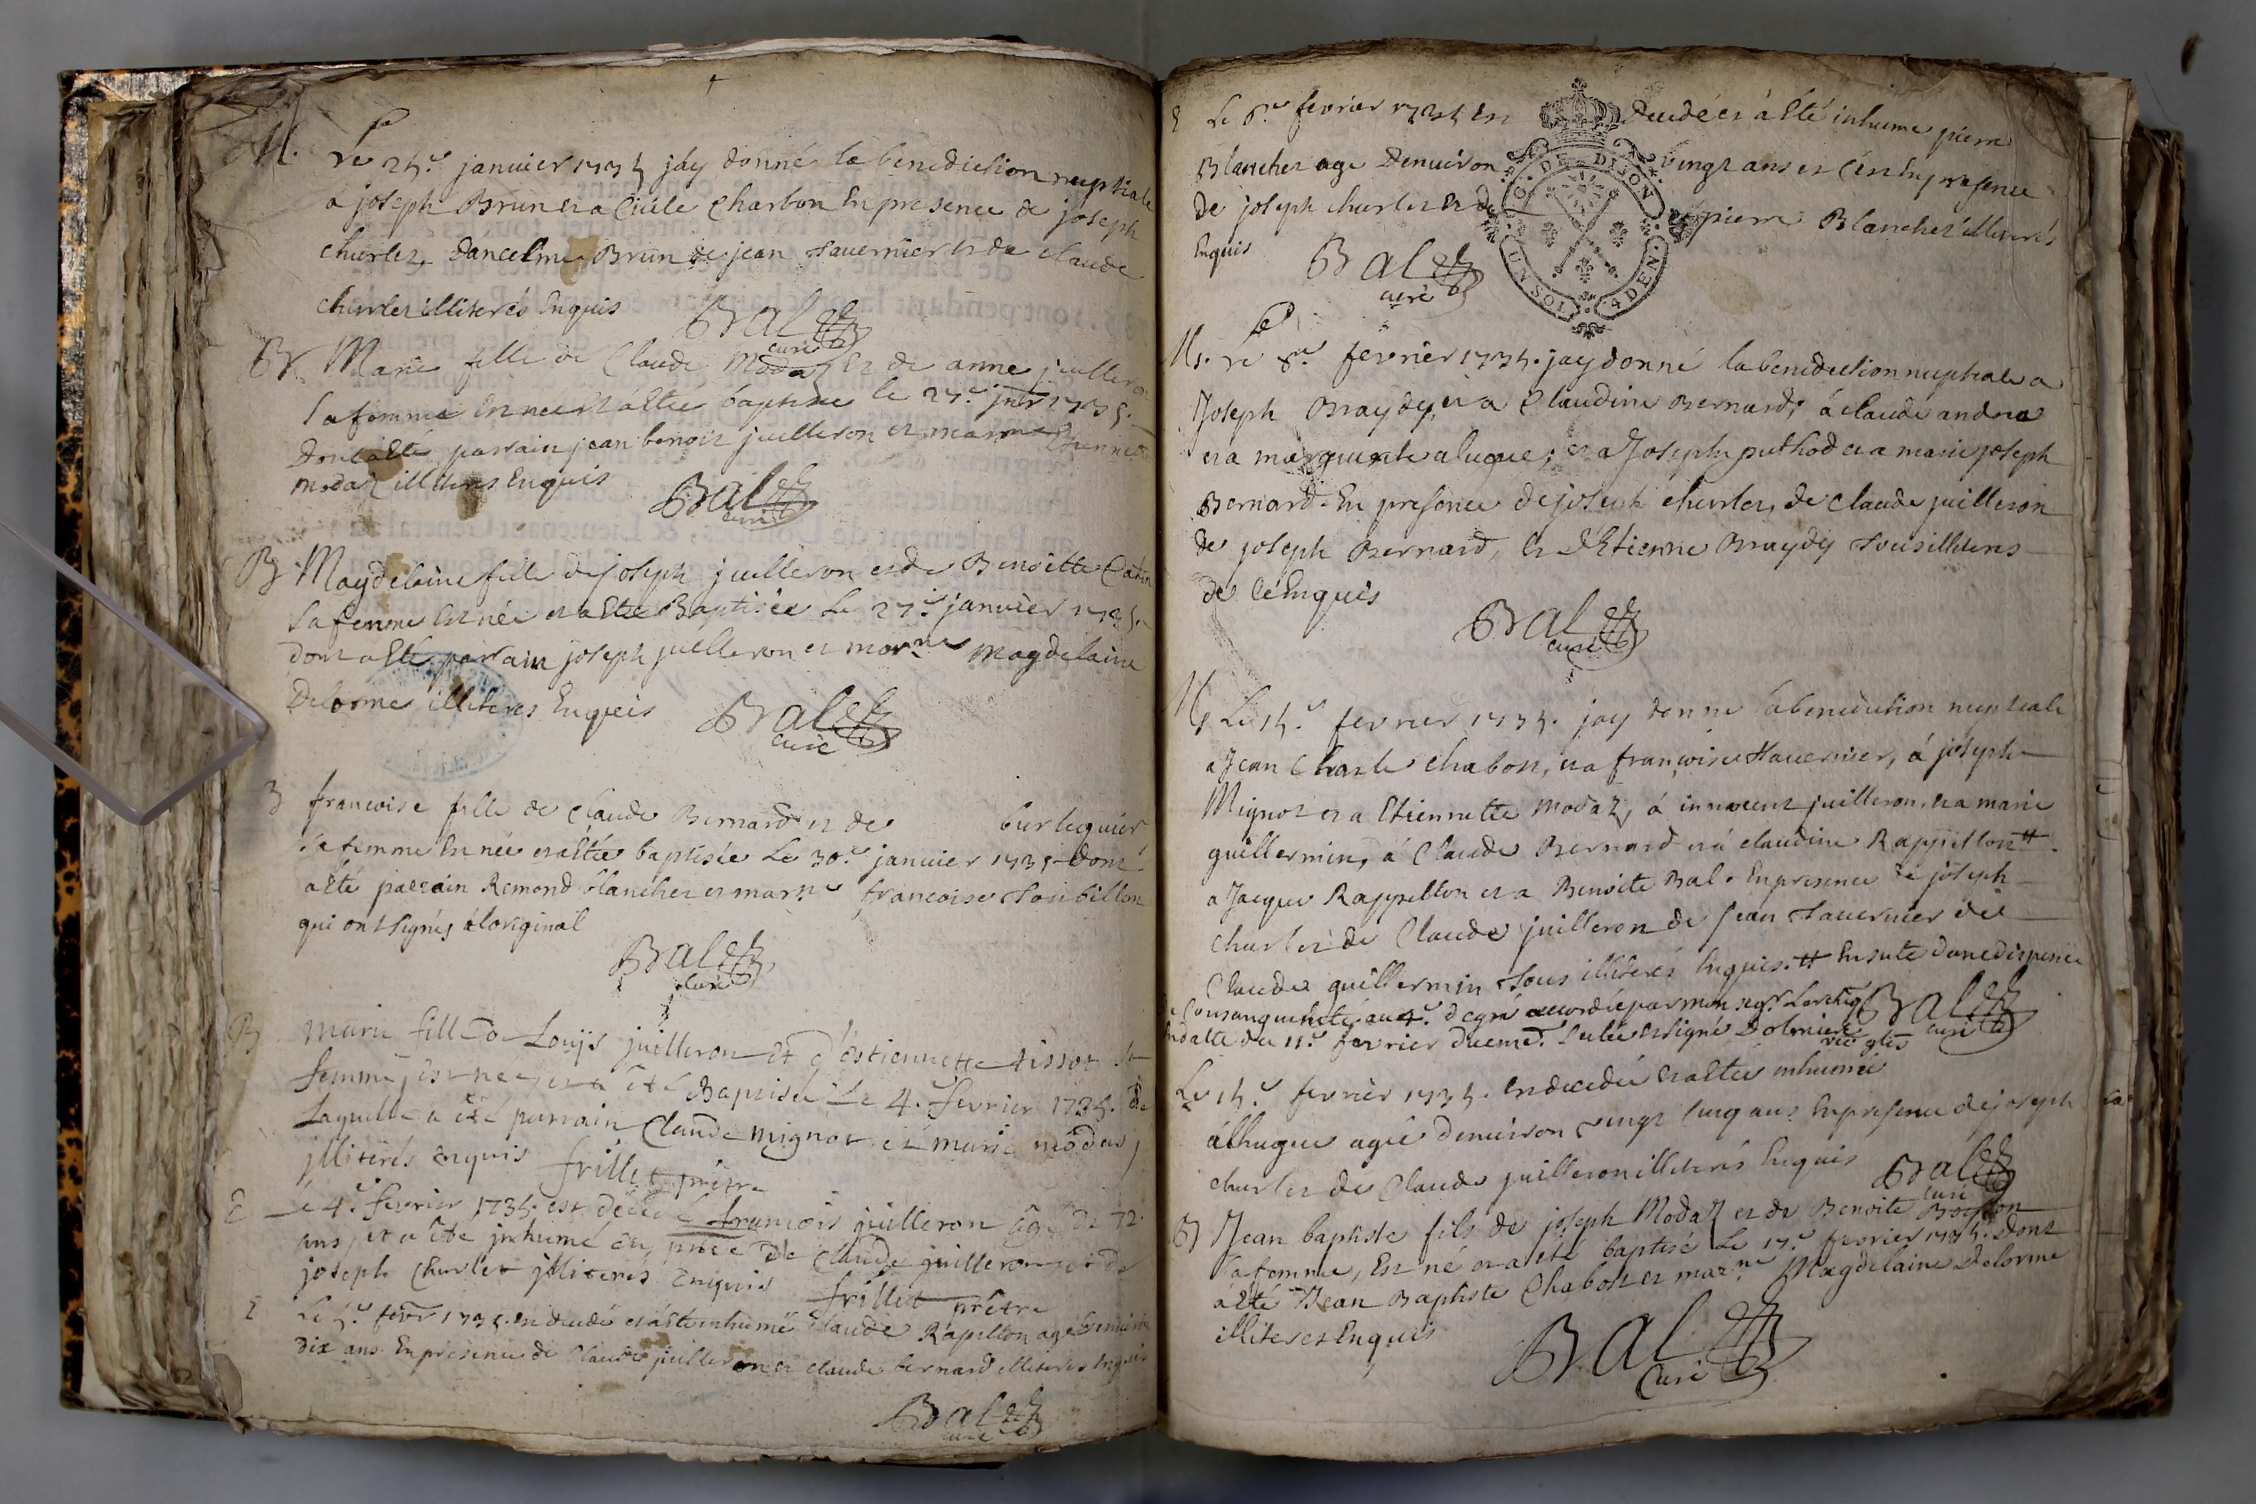 M. Le 24.e janvier 1735 jáy donné la benediction nuptiale
a joseph Brun et a Cicile Charbon En presence de joseph
churlet, dancelme Brun de jean tavernier et de claude
churlet illiterés Enquis
Bal curé
B Marie fille de Claude Modaz et de anne juilleron
sa femme Est nee et a esté baptisée le 27.e jer 1735.
dont a esté parrain jean benoit juilleron et marne Etiennette
modaz illiteres Enquis
Bal curé
B Magdelaine fille de joseph juilleron et de Benoitte
sa femme Est née et a Esté Baptisée Le 27.e janvier 1735.
dont a Esté parrain joseph juilleron et marne Magdelaine
Delorme illiteres Enqueis
Bal curé
B francoise fille de Claude Bernard et de burliquier
sa femme Est née et a esté baptisée Le 30.e janvier 1735 dont
a Esté parrain Remond blanchet et marne francoise Soubillon
qui ont signés a loriginal
Bal curé
B marie fille de Louijs juilleron et d'estiennette tissot sa
femme, est neé et a été Baptisée Le 4.e fevrier 1735. de
Laquelle a été parrain Claude mignot et marie modas j
jlliterés enquis frillet prêtre
E Le 4.e fevrier 1735. est décédé françois juilleron âgé de 72.
ans, et a été jnhumé en, pnce de Claude juilleron et de
joseph churlet jlliterés enquis frillet prêtre
E Le 5.e fevr 1735. Est decedé et a esté inhumé Claude Rapillon agé denviron
dix ans En presence de Claude juilleron et claude bernard illiteres Enquis
Bal curé
E Le 6.e fevrier 1735 Est decedé et á Esté inhumé pierre
Blanchet age denviron vingt ans et c'est En presence
de joseph churlet et de pierre Blanchet illiterés
Enquis
Bal curé
G. DE DIJON
UN SOL 4 DEN.
M. Le 8.e fevrier 1735. jay donné la benediction nuptiale a
Joseph Braydy, et a Claudine Bernard; á claude andrea
et a marguerite aluque; et a Joseph puthod et a marie joseph
Bernard. En presence de joseph churlet, de Claude juilleron
de joseph Bernard, et d'Etienne Braydy tous illiteres
de ce Enquis
Bal curé
M Le 15.e fevrier 1735. jay donné la benediction nuptiale
a Jean Charle Chabon, et a françoise tavernier, á joseph
Mignot et a Etiennette Modaz, á innocent juilleron et a marie
guillermin, á Claude Bernard et á claudine Rappillon #.
a Jacque Rappillon et a Benoite Bal. En presence de joseph
churlet de Claude juilleron de jean tavernier de
Claude guillermin tous illiterés Enquis. # Ensuite dune dispence
Consanguinité au 4.e degré accordée par mon segr Larchig
en datte du 11.e fevrier
Bal curé
Le 15.e fevrier 1735. Est decedée et a esté inhumée
áluque agée denviron vingt cinq ans En presence de joseph
churlet de Claude juilleron illiterés Enquis
Bal curé
B Jean baptiste fils de joseph Modaz et de Benoite
sa femme, Est né et a été baptisé Le 17.e fevrier 1735. dont
a Eté Jean Baptiste Chabon et marne Magdelaine Delorme
illiteres Enquis
Bal Curé